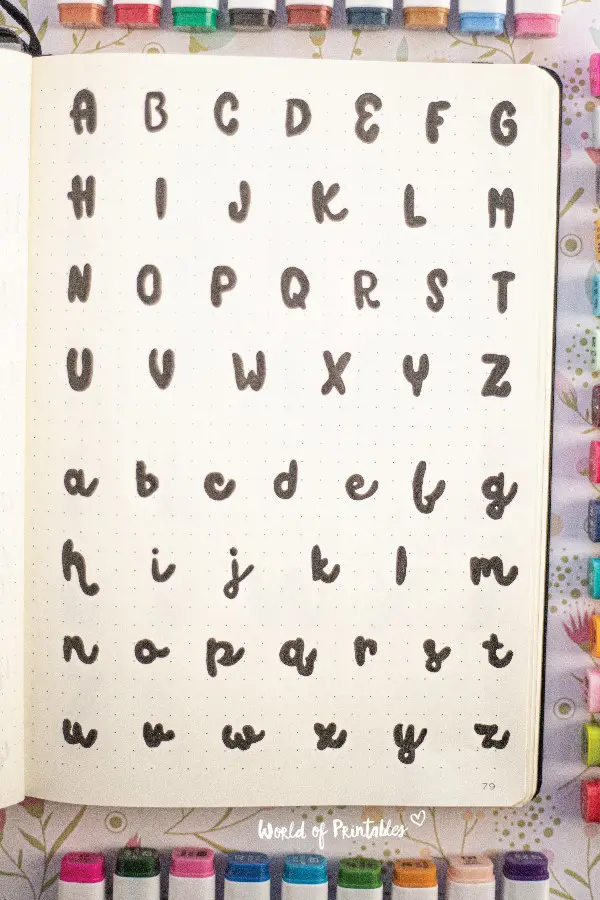 A B C D E F G
H I J K L M
N O P Q R S T
U V W X Y Z
a b c d e f g
h i j k l m
n o p q r s t
u v w x y z
79
World of Printables